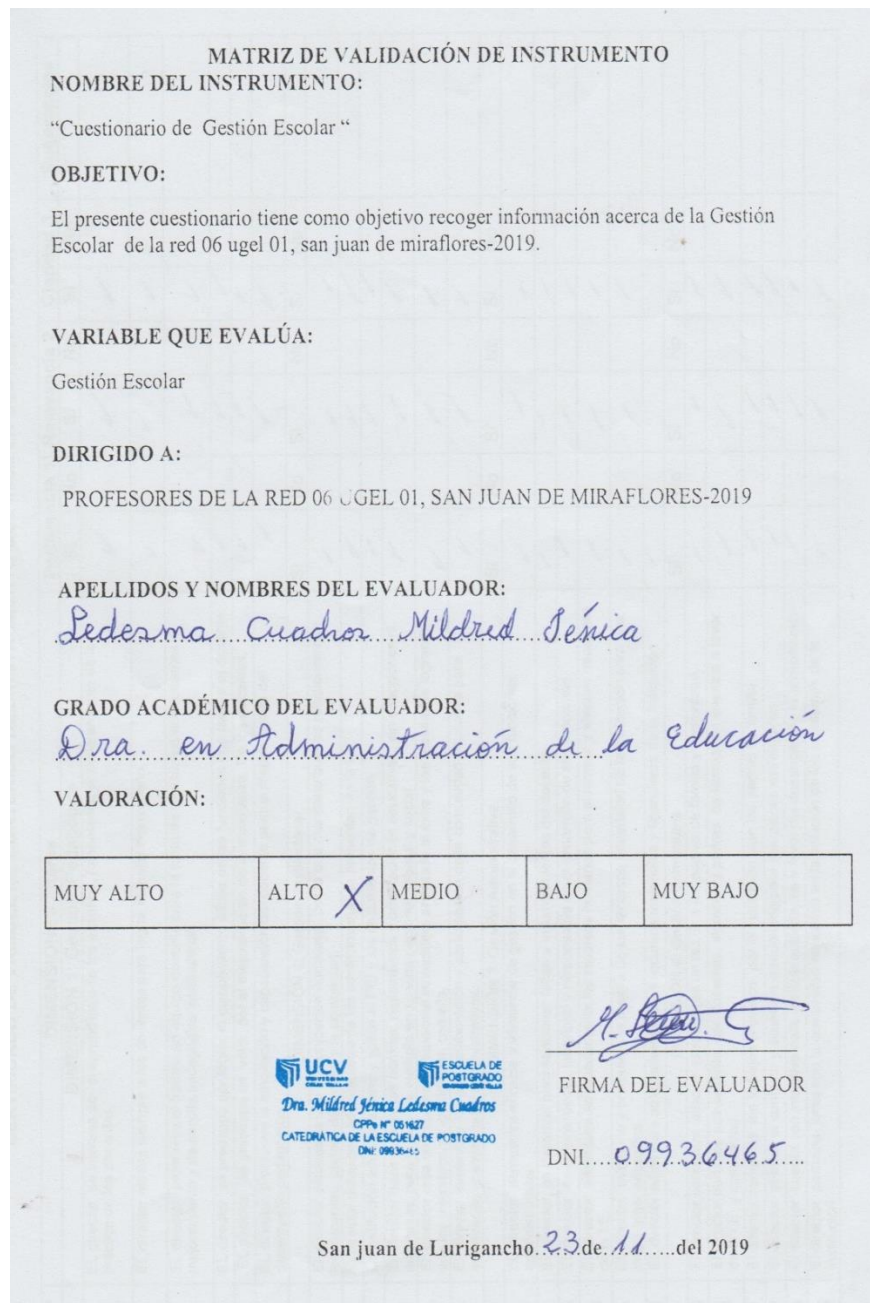 MATRIZ DE VALIDACIÓN DE INSTRUMENTO
NOMBRE DEL INSTRUMENTO:
“Cuestionario de Gestión Escolar “
OBJETIVO:
El presente cuestionario tiene como objetivo recoger información acerca de la Gestión
Escolar de la red 06 ugel 01, san juan de miraflores-2019.
VARIABLE QUE EVALÚA:
Gestión Escolar
DIRIGIDO A:
PROFESORES DE LA RED 06 UGEL 01, SAN JUAN DE MIRAFLORES-2019
APELLIDOS Y NOMBRES DEL EVALUADOR:
Ledesma Cuadros Mildred Jénica
GRADO ACADÉMICO DEL EVALUADOR:
Dra. en Administración de la Educación
VALORACIÓN:
MUY ALTO ALTO X MEDIO BAJO MUY BAJO
UCV ESCUELA DE POSTGRADO
Dra. Mildred Jénica Ledesma Cuadros
CPPe N° 051627
CATEDRATICA DE LA ESCUELA DE POSTGRADO
DNI: 09936465
FIRMA DEL EVALUADOR
DNI....09936465....
San juan de Lurigancho.23.de.11.....del 2019